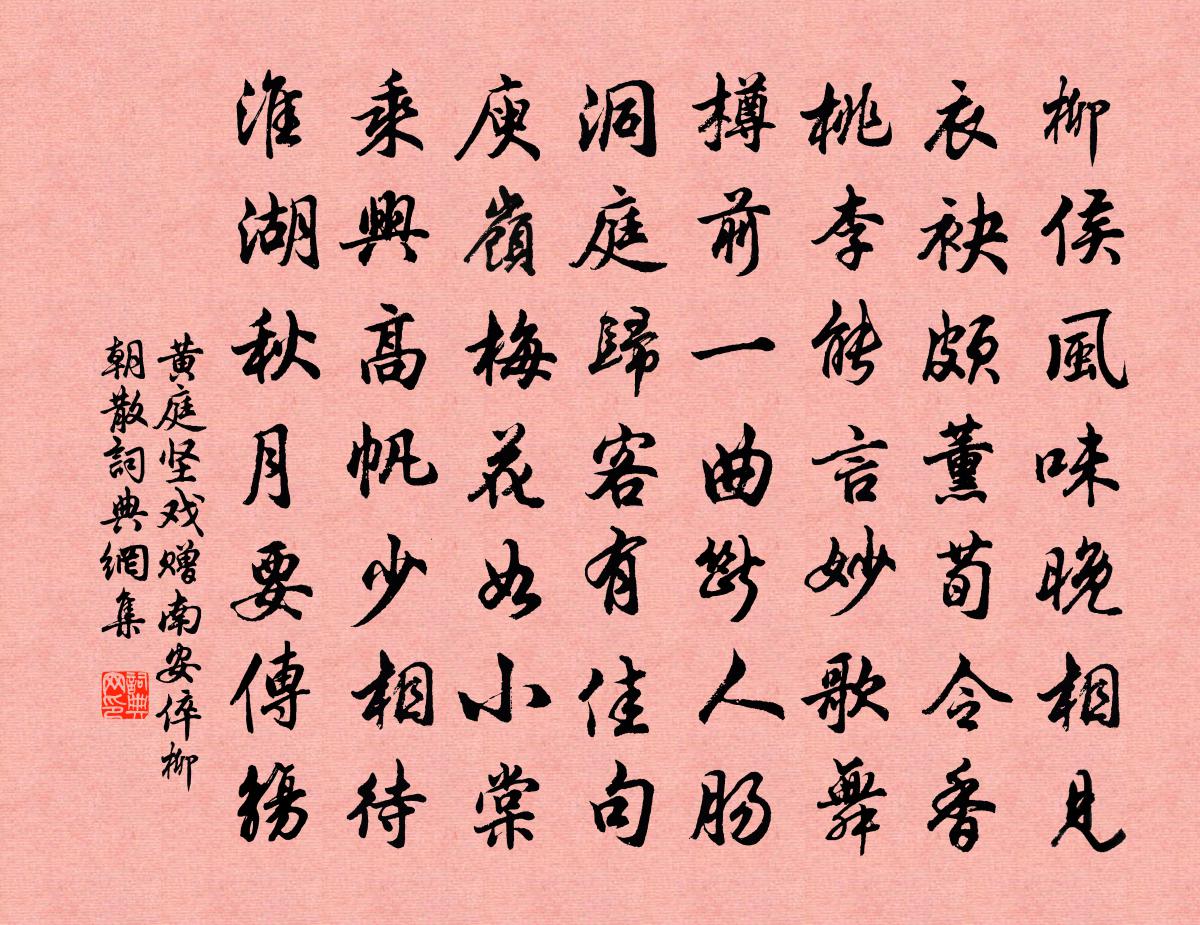 柳侯風味晚相見
衣袂頗薰荀令香
桃李能言妙歌舞
樽前一曲斷人肠
洞庭歸客有佳句
庾嶺梅花如小棠
乘興高帆少相待
淮湖秋月要傳觴
黄庭坚戏赠南安倅柳
朝散詞典網集
詞典
网